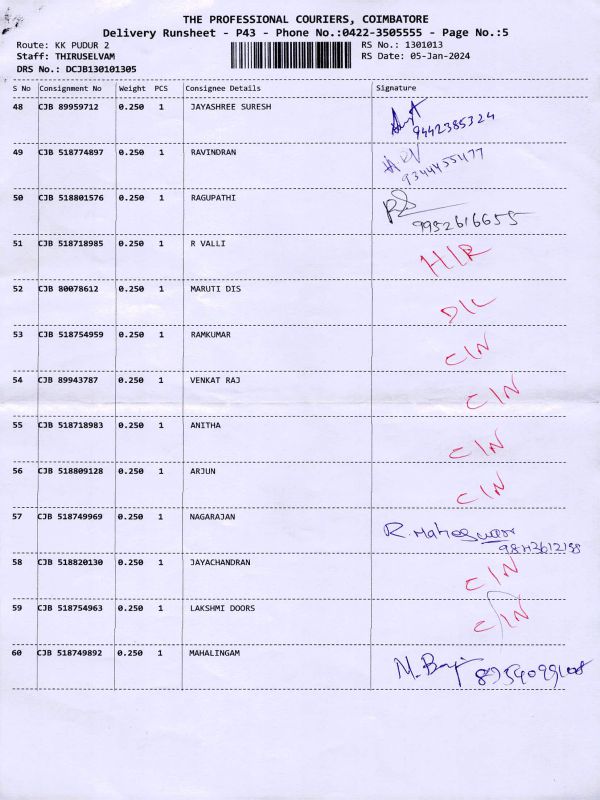 THE PROFESSIONAL COURIERS, COIMBATORE
Delivery Runsheet - P43 - Phone No.:0422-3505555 - Page No.:5
Route: KK PUDUR 2 RS No.: 1301013
Staff: THIRUSELVAM RS Date: 05-Jan-2024
DRS No.: DCJB130101305
S No Consignment No Weight PCS Consignee Details Signature
48 CJB 89959712 0.250 1 JAYASHREE SURESH
9442385324
49 CJB 518774897 0.250 1 RAVINDRAN
9344455477
50 CJB 518801576 0.250 1 RAGUPATHI
9952616655
51 CJB 518718985 0.250 1 R VALLI H/R
52 CJB 80078612 0.250 1 MARUTI DIS D/L
53 CJB 518754959 0.250 1 RAMKUMAR C/N
54 CJB 89943787 0.250 1 VENKAT RAJ C/N
55 CJB 518718983 0.250 1 ANITHA C/N
56 CJB 518809128 0.250 1 ARJUN C/N
57 CJB 518749969 0.250 1 NAGARAJAN R. Maheswari
58 CJB 518820130 0.250 1 JAYACHANDRAN C/N
59 CJB 518754963 0.250 1 LAKSHMI DOORS C/N
60 CJB 518749892 0.250 1 MAHALINGAM